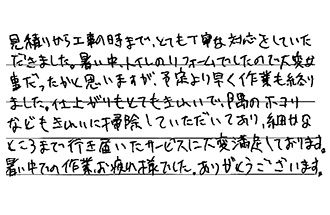 見積りから工事の時まで、とても丁寧な対応をしていた
だきました。暑い中、トイレのリフォームでしたので大変な
事だったかと思いますが、予定より早く作業も終り
ました。仕上がりもとてもきれいで、隅のホコリ
などもきれいに掃除していただいてあり、細かな
ところまで行き届いたサービスに大変満足しております。
暑い中での作業お疲れ様でした。ありがとうございます。